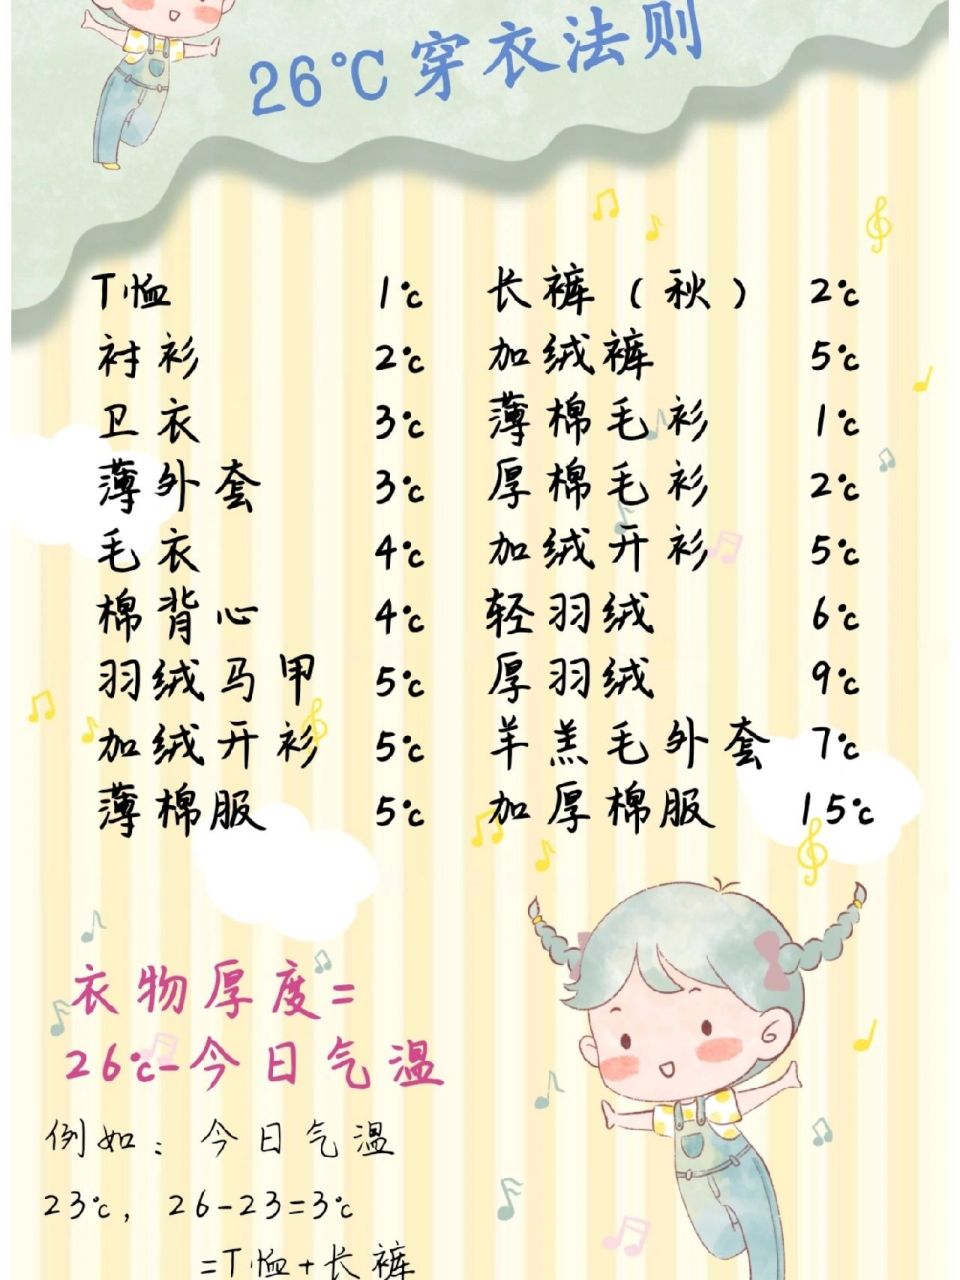 26℃穿衣法则
T恤 1℃ 长裤（秋） 2℃
衬衫 2℃ 加绒裤 5℃
卫衣 3℃ 薄棉毛衫 1℃
薄外套 3℃ 厚棉毛衫 2℃
毛衣 4℃ 加绒开衫 5℃
棉背心 4℃ 轻羽绒 6℃
羽绒马甲 5℃ 厚羽绒 9℃
加绒开衫 5℃ 羊羔毛外套 7℃
薄棉服 5℃ 加厚棉服 15℃
衣物厚度=
26℃-今日气温
例如：今日气温
23℃，26-23=3℃
=T恤+长裤